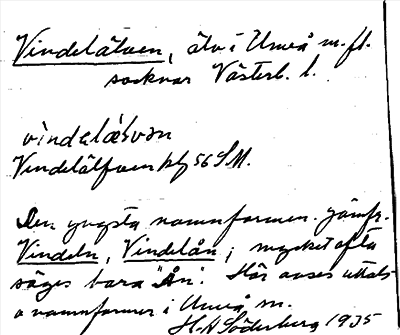 Vindelälven, älv i Umeå m. fl.
socknar Västerb. l.
vìndelä́lvən
Vindelälfven klf 56 S.M.
Den yngsta namnformen. Jämfr.
Vindeln, Vindelån; mycket ofta
säges bara "Ån". Här avses uttals-
o namnformer i Umeå sn.
H.A. Söderberg 1935